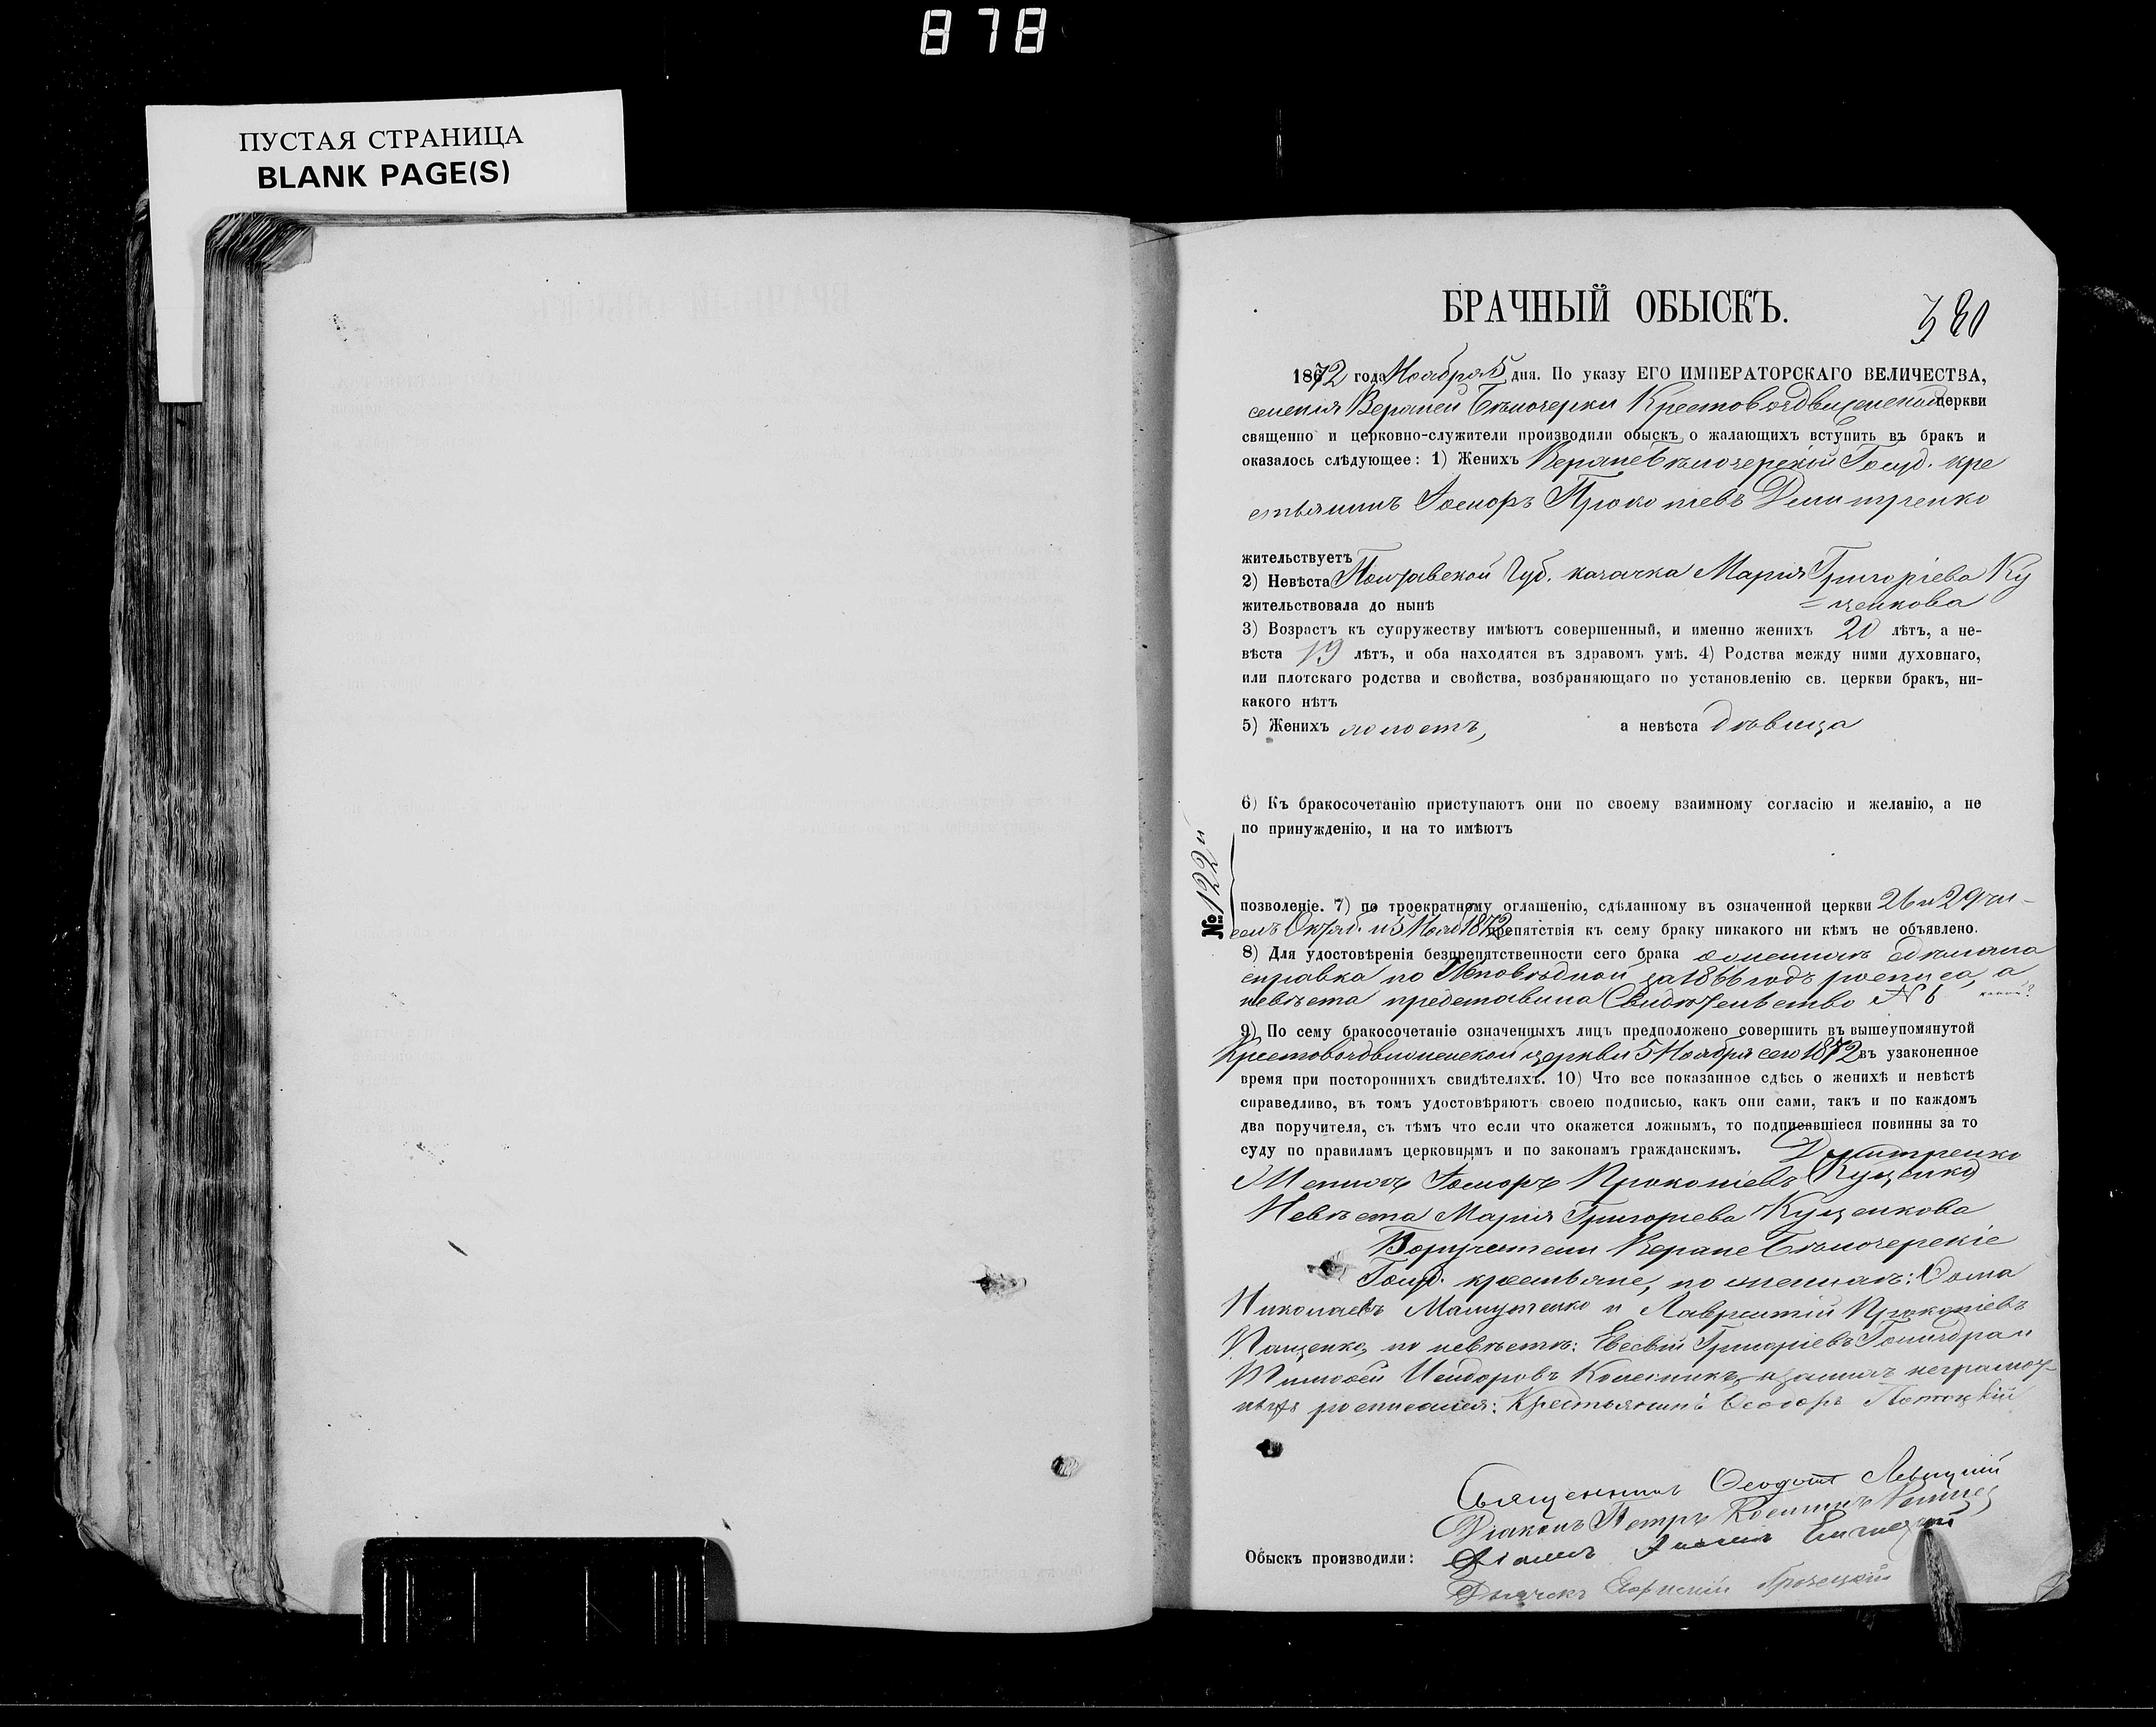 878
ПУСТАЯ СТРАНИЦА
BLANK PAGE(S)
БРАЧНЫЙ ОБЫСКЪ.
380
1872 года Ноября 5 дня. По указу ЕГО ИМПЕРАТОРСКАГО ВЕЛИЧЕСТВА,
селенія Верхней Бѣлозерки Крестовоздвиженской церкви
священно и церковно-служители производили обыскъ о жалающихъ вступить въ бракъ и
оказалось слѣдующее: 1) Женихъ Верхнебѣлозерскій Госуд. кре
стьянинъ Прокопіевъ Дмитренко
жительствуетъ
2) Невѣста Полтавской Губ. казачка Марія Григоріева Ку
=ценкова
жительствовала до нынѣ
3) Возрастъ къ супружеству имѣютъ совершенный, и именно женихъ 20 лѣтъ, а не-
вѣста 19 лѣтъ, и оба находятся въ здравомъ умѣ. 4) Родства между ними духовнаго,
или плотскаго родства и свойства, возбраняющаго по установленію св. церкви бракъ, ни-
какого нѣтъ
5) Женихъ холостъ, а невѣста дѣвица
6) Къ бракосочетанію приступаютъ они по своему взаимному согласію и желанію, а не
по принужденію, и на то имѣютъ
№ 122й
позволеніе. 7) по троекратному оглашенію, сдѣланному въ означенной церкви 26 и 29 чи-
селъ Октяб. и 5 Нояб 1872 препятствія къ сему браку никакого ни кѣмъ не объявлено.
8) Для удостовѣренія безпрепятственности сего брака сдѣлана
справка по Исповѣдной за 1866 годъ росписа, а
невѣста представила Свидѣтельство №
9) По сему бракосочетаніе означенныхъ лицъ предположено совершить въ вышеупомянутой
Крестовоздвиженской церкви 5 Ноября сего 1872 въ узаконенное
время при постороннихъ свидѣтеляхъ. 10) Что все показанное сдѣсь о женихѣ и невѣстѣ
справедливо, въ томъ удостовѣряютъ своею подписью, какъ они сами, такъ и по каждомъ
два поручителя, съ тѣмъ что если что окажется ложнымъ, то подписавшіеся повинны за то
суду по правиламъ церковнымъ и по законамъ гражданскимъ.
Дмитренко
Женихъ Прокопіевъ Куценко
Невѣста Марія Григоріева Куценкова
Поручители Верхнебѣлозерскіе
Госуд. крестьяне, по женихѣ: Ѳома
Николаевъ и Лаврентій Прокопіевъ
по невѣстѣ: Евсевій Григоріевъ и
Тимоѳей Исидоровъ Колесникъ, а за нихъ неграмот-
ныхъ росписался: Крестьянинъ Ѳеодоръ
Священникъ Ѳеодотъ Левицкій
Діаконъ Петръ
Обыскъ производили:
Дьячокъ